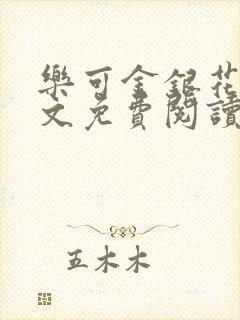 樂可金銀花
文免費閱讀
五木木